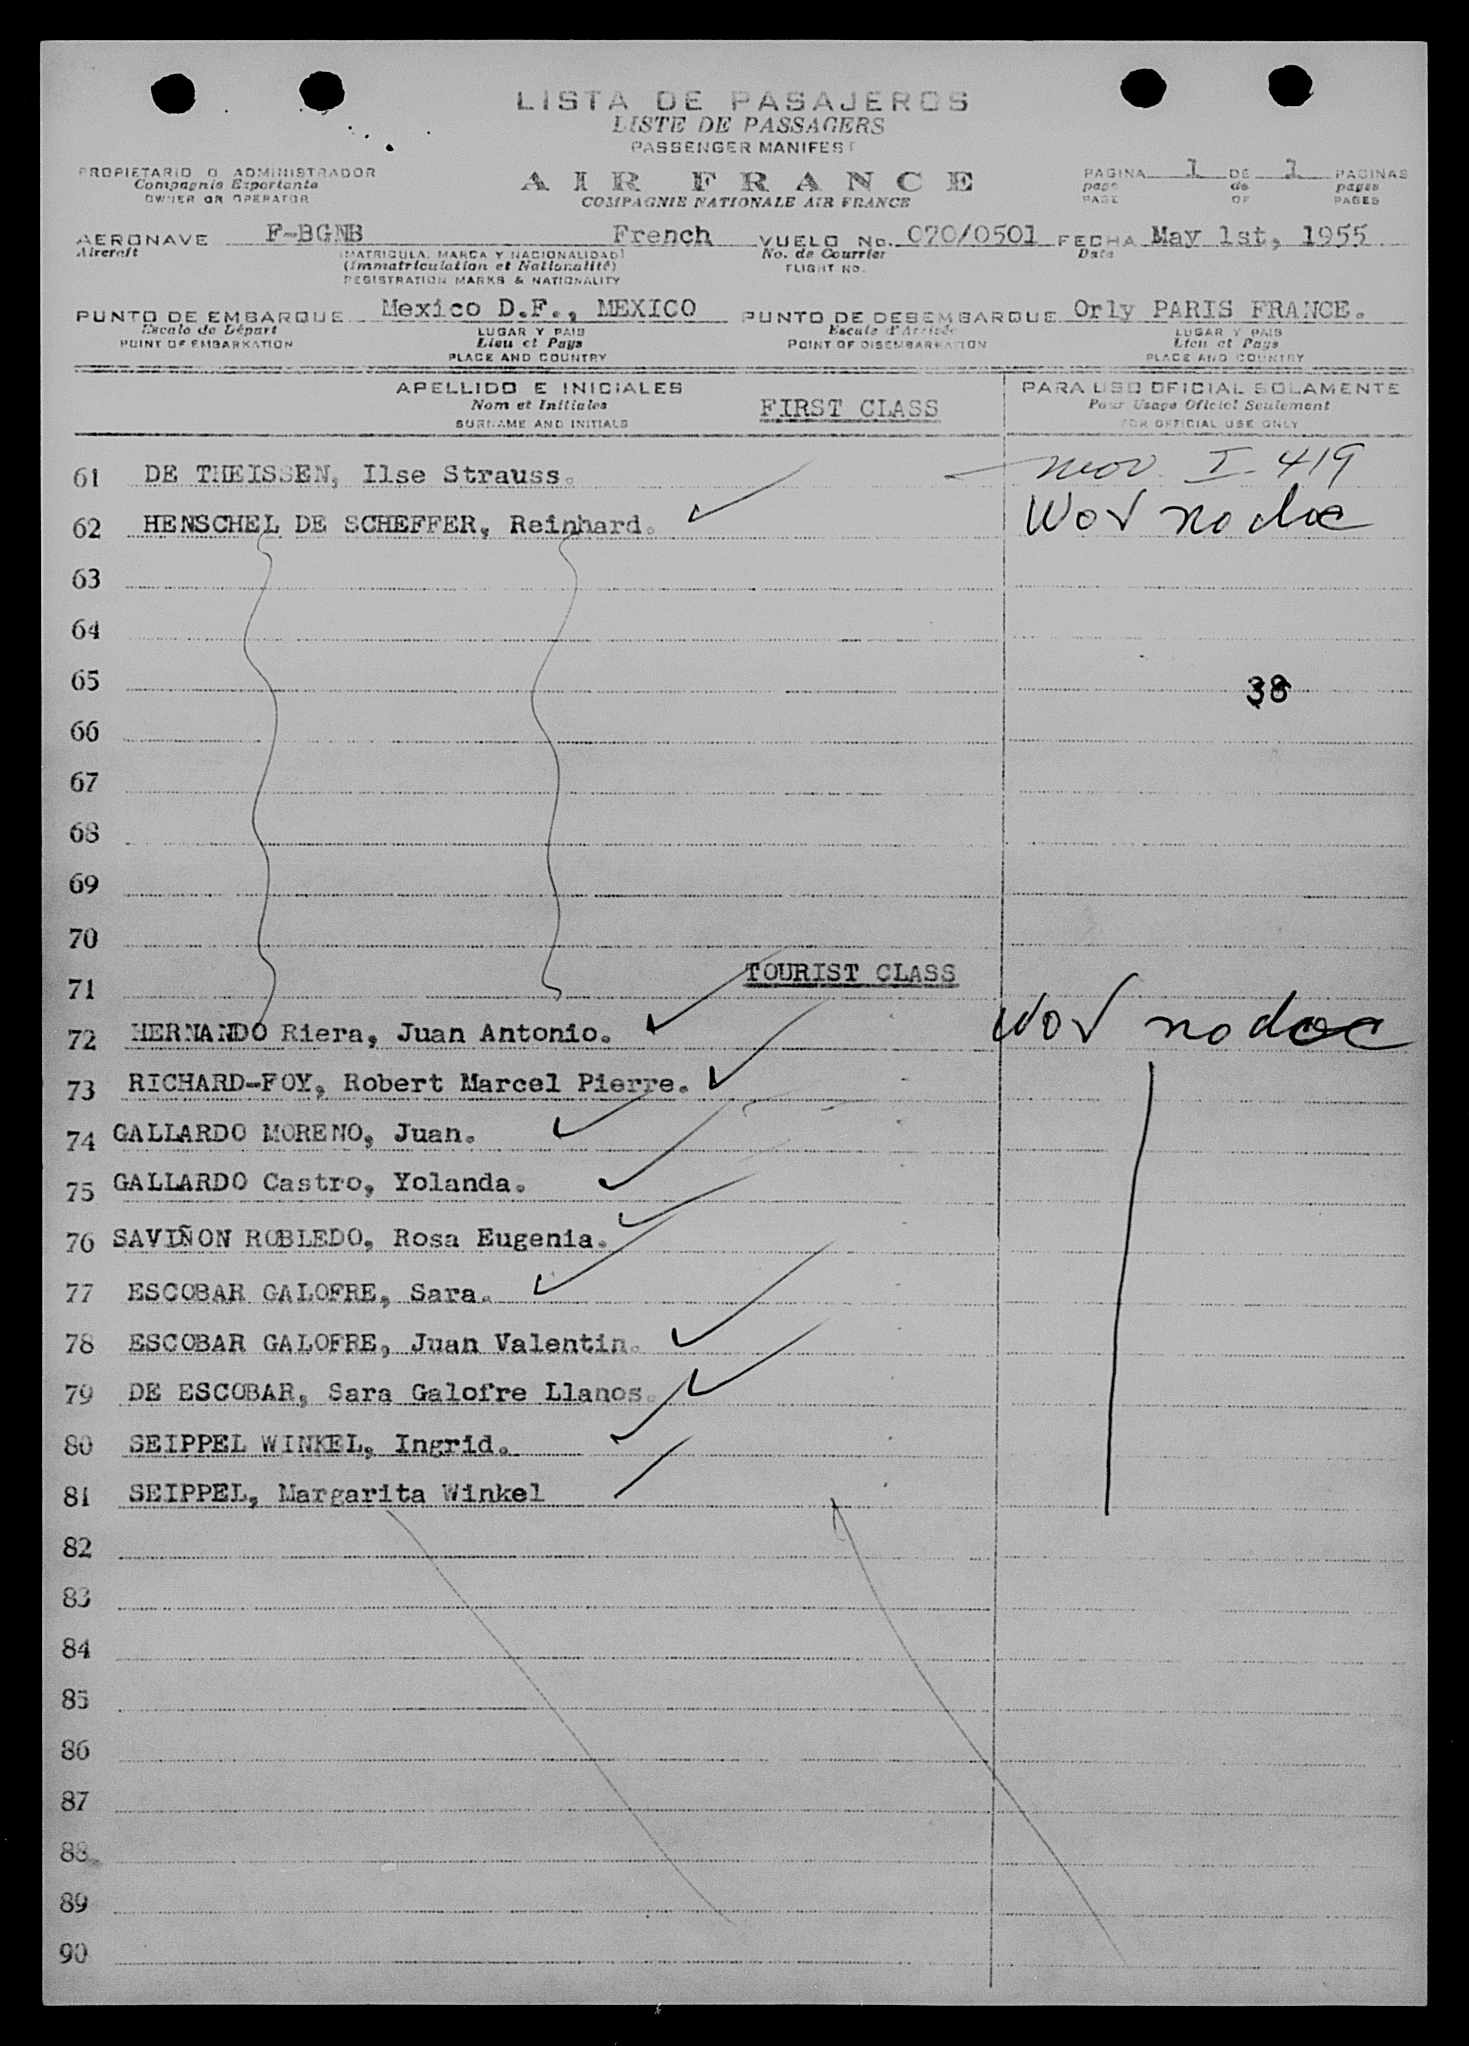 LISTA DE PASAJEROS
LISTE DE PASSAGERS
PASSENGER MANIFEST
PROPIETARIO O ADMINISTRADOR
Compagnie Exportante
OWNER OR OPERATOR
AIR FRANCE
COMPAGNIE NATIONALE AIR FRANCE
PAGINA 1 DE 1 PAGINAS
page de pages
PAGE OF PAGES
AERONAVE F-BGNB French VUELO No. 070/0501 FECHA May 1st, 1955
Aircraft (MATRICULA, MARCA Y NACIONALIDAD) No. de Courrier Date
(Immatriculation et Nationalité) FLIGHT NO.
REGISTRATION MARKS & NATIONALITY
PUNTO DE EMBARQUE Mexico D.F., MEXICO PUNTO DE DESEMBARQUE Orly PARIS FRANCE.
Escale de Départ LUGAR Y PAIS Escale d'Arrivée LUGAR Y PAIS
POINT OF EMBARKATION Lieu et Pays POINT OF DISEMBARKATION Lieu et Pays
PLACE AND COUNTRY PLACE AND COUNTRY
APELLIDO E INICIALES PARA USO OFICIAL SOLAMENTE
Nom et Initiales FIRST CLASS Pour Usage Officiel Seulement
SURNAME AND INITIALS FOR OFFICIAL USE ONLY
61 DE THEISSEN, Ilse Strauss. I-419
62 HENSCHEL DE SCHEFFER, Reinhard. no doc
63
64
65 38
66
67
68
69
70
TOURIST CLASS
71
72 HERNANDO Riera, Juan Antonio. no doc
73 RICHARD-FOY, Robert Marcel Pierre.
74 GALLARDO MORENO, Juan.
75 GALLARDO Castro, Yolanda.
76 SAVIÑON ROBLEDO, Rosa Eugenia.
77 ESCOBAR GALOFRE, Sara.
78 ESCOBAR GALOFRE, Juan Valentin.
79 DE ESCOBAR, Sara Galofre Llanos.
80 SEIPPEL WINKEL, Ingrid.
81 SEIPPEL, Margarita Winkel
82
83
84
85
86
87
88
89
90